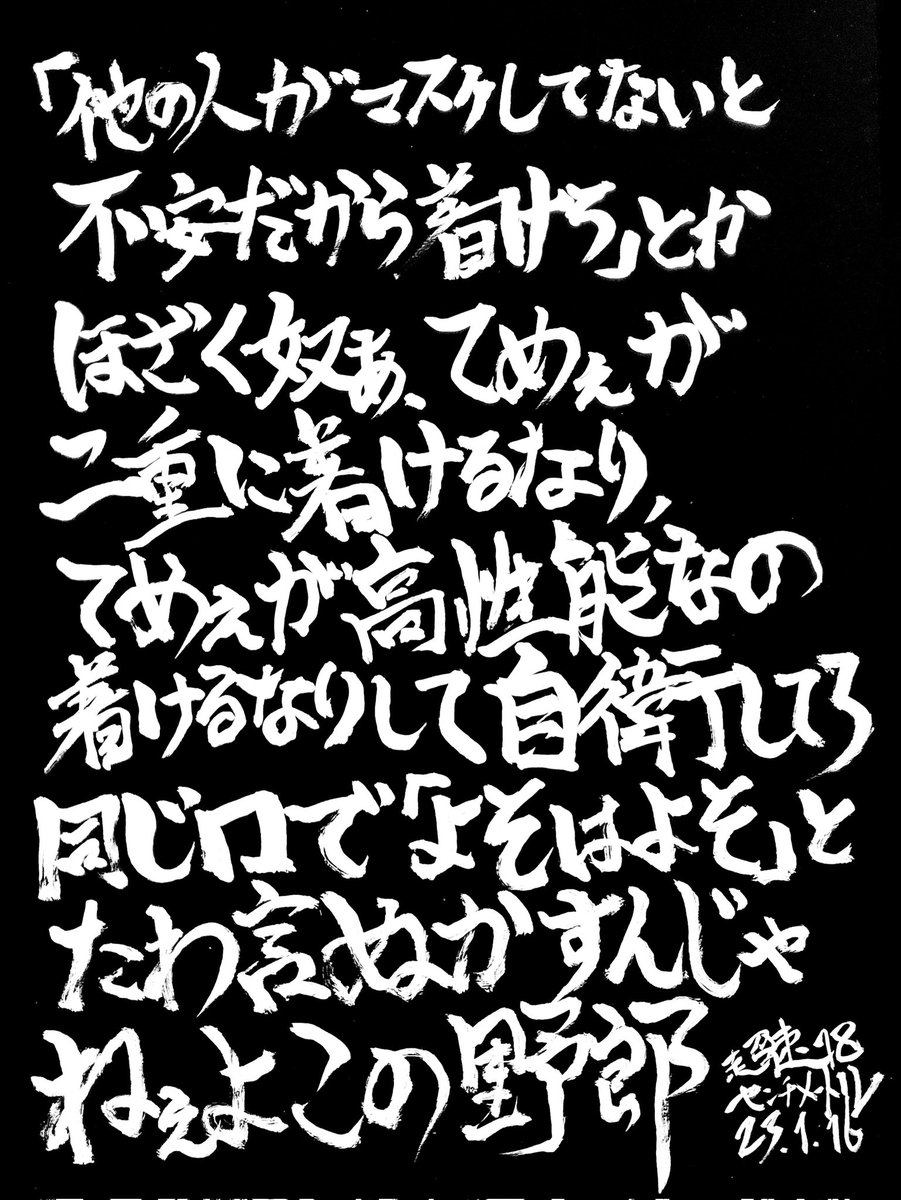 「他の人がマスクしてないと
不安だから着けろ」とか
ほざく奴ぁ、てめぇが
二重に着けるなり、
てめぇが高性能なの
着けるなりして自衛してろ
同じ口で「よそはよそ」と
たわ言ぬかすんじゃ
ねぇよこの野郎
センチメートル
23.1.16